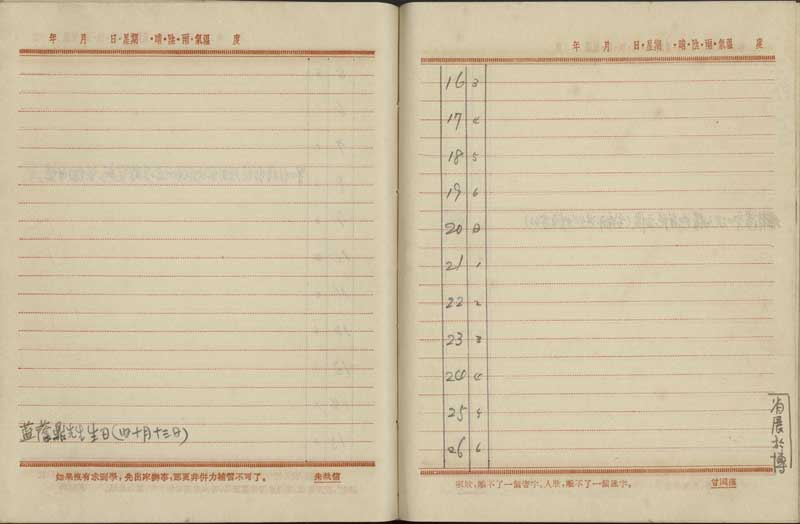 年 月 日·星期 ·晴·陰·雨·氣溫 度
藍蔭鼎先生生日(十月十三日)
如果沒有求到學，先出來辦事，那更非併力補習不可了。 朱執信
年 月 日·星期 ·晴·陰·雨·氣溫 度
16 3
17 4
18 5
19 6
20 日
21 1
22 2
23 3
24 4
25 5
26 6
省展於博
家敗，離不了一個奢字。人敗，離不了一個逸字。 曾國藩